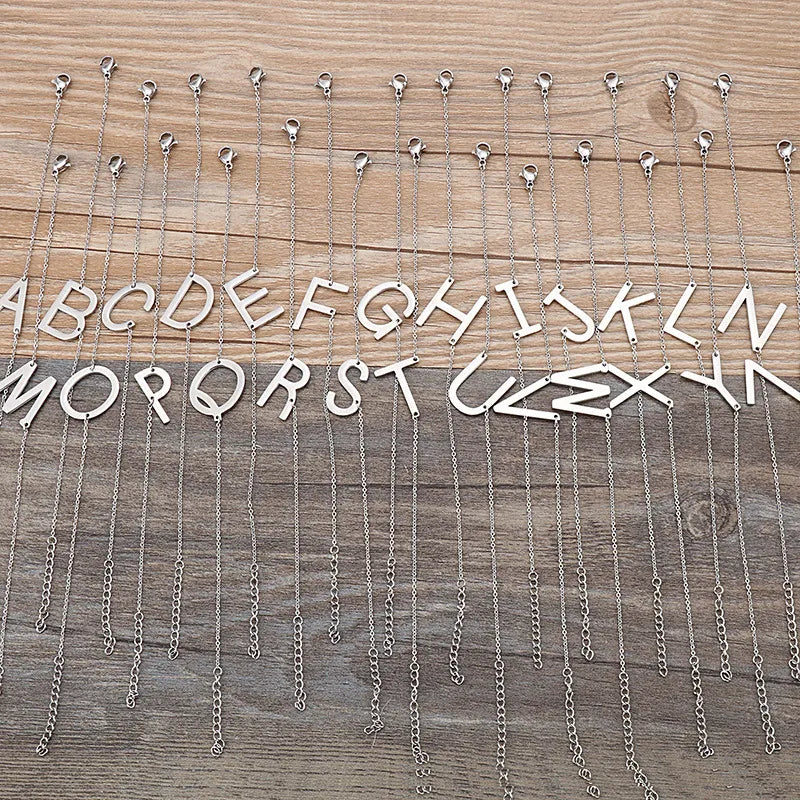 A B C D E F G H I J K L N
M O P Q R S T U V W X Y Z